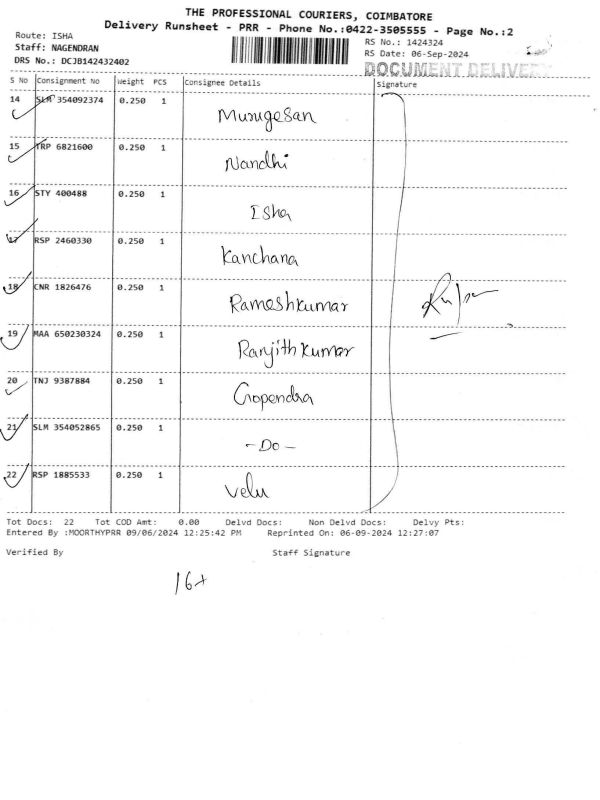 THE PROFESSIONAL COURIERS, COIMBATORE
Delivery Runsheet - PRR - Phone No.:0422-3505555 - Page No.:2
Route: ISHA
Staff: NAGENDRAN
DRS No.: DCJB142432402
RS No.: 1424324
RS Date: 06-Sep-2024
DOCUMENT DELIVERY
S No Consignment No Weight PCS Consignee Details Signature
14 SLM 354092374 0.250 1 Murugesan
15 TRP 6821600 0.250 1 Nandhi
16 STY 400488 0.250 1 Isha
17 RSP 2460330 0.250 1 Kanchana
18 CNR 1826476 0.250 1 Rameshkumar
19 MAA 650230324 0.250 1 Ranjith Kumar
20 TNJ 9387884 0.250 1 Gopendra
21 SLM 354052865 0.250 1 - Do -
22 RSP 1885533 0.250 1 Velu
Tot Docs: 22 Tot COD Amt: 0.00 Delvd Docs: Non Delvd Docs: Delvy Pts:
Entered By :MOORTHYPRR 09/06/2024 12:25:42 PM Reprinted On: 06-09-2024 12:27:07
Verified By Staff Signature
16+